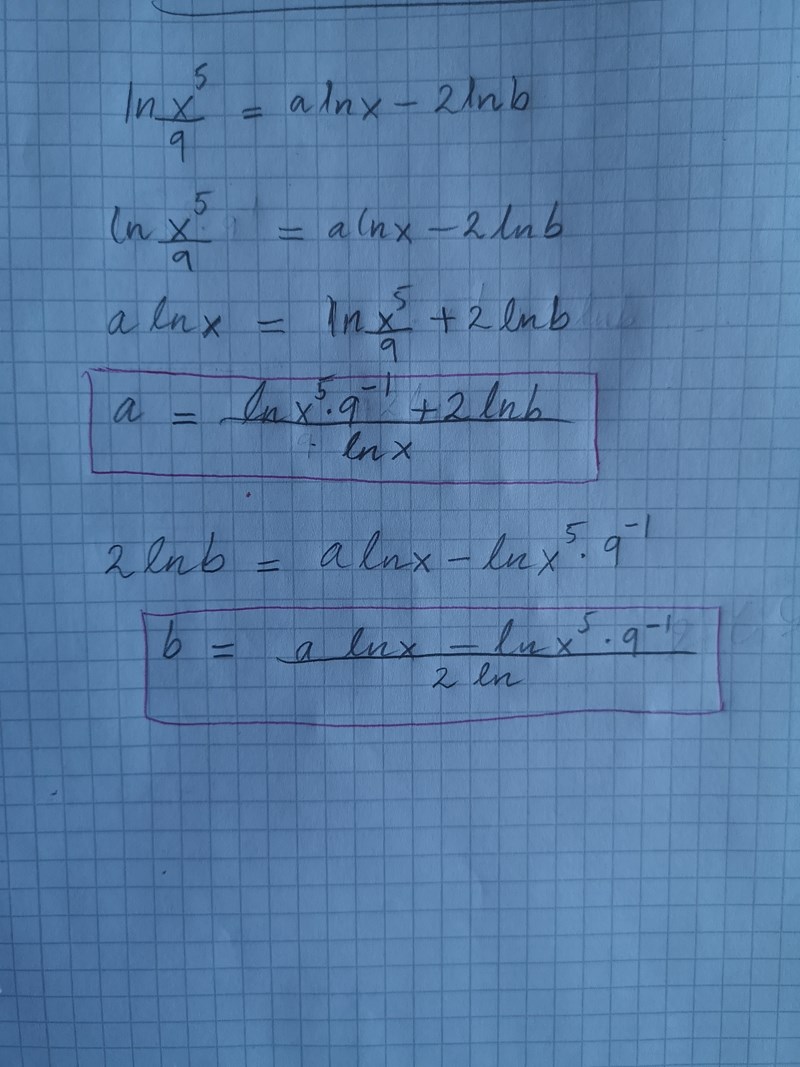 ln x⁵/9 = a ln x − 2 ln b
ln x⁵/9 = a ln x − 2 ln b
a ln x = ln x⁵/9 + 2 ln b
a = (ln x⁵ · 9⁻¹ + 2 ln b)/(ln x)
2 ln b = a ln x − ln x⁵ · 9⁻¹
b = (a ln x − ln x⁵ · 9⁻¹)/(2 ln)